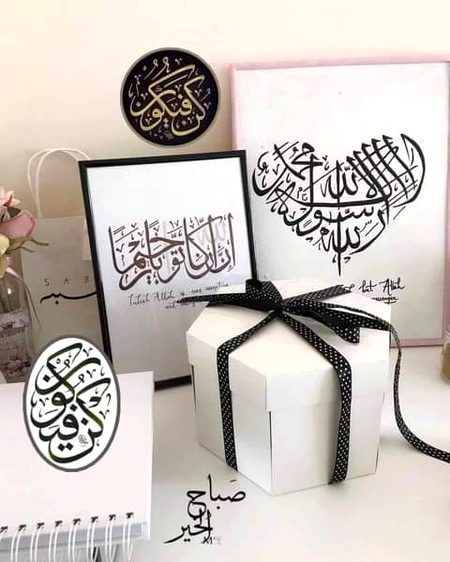 كن فيكون
لا إله إلا الله محمد رسول الله
but Allah
messenger
إن الله كان توابا رحيما
Indeed Allah is ever accepting
كن فيكون
صباح
الخير